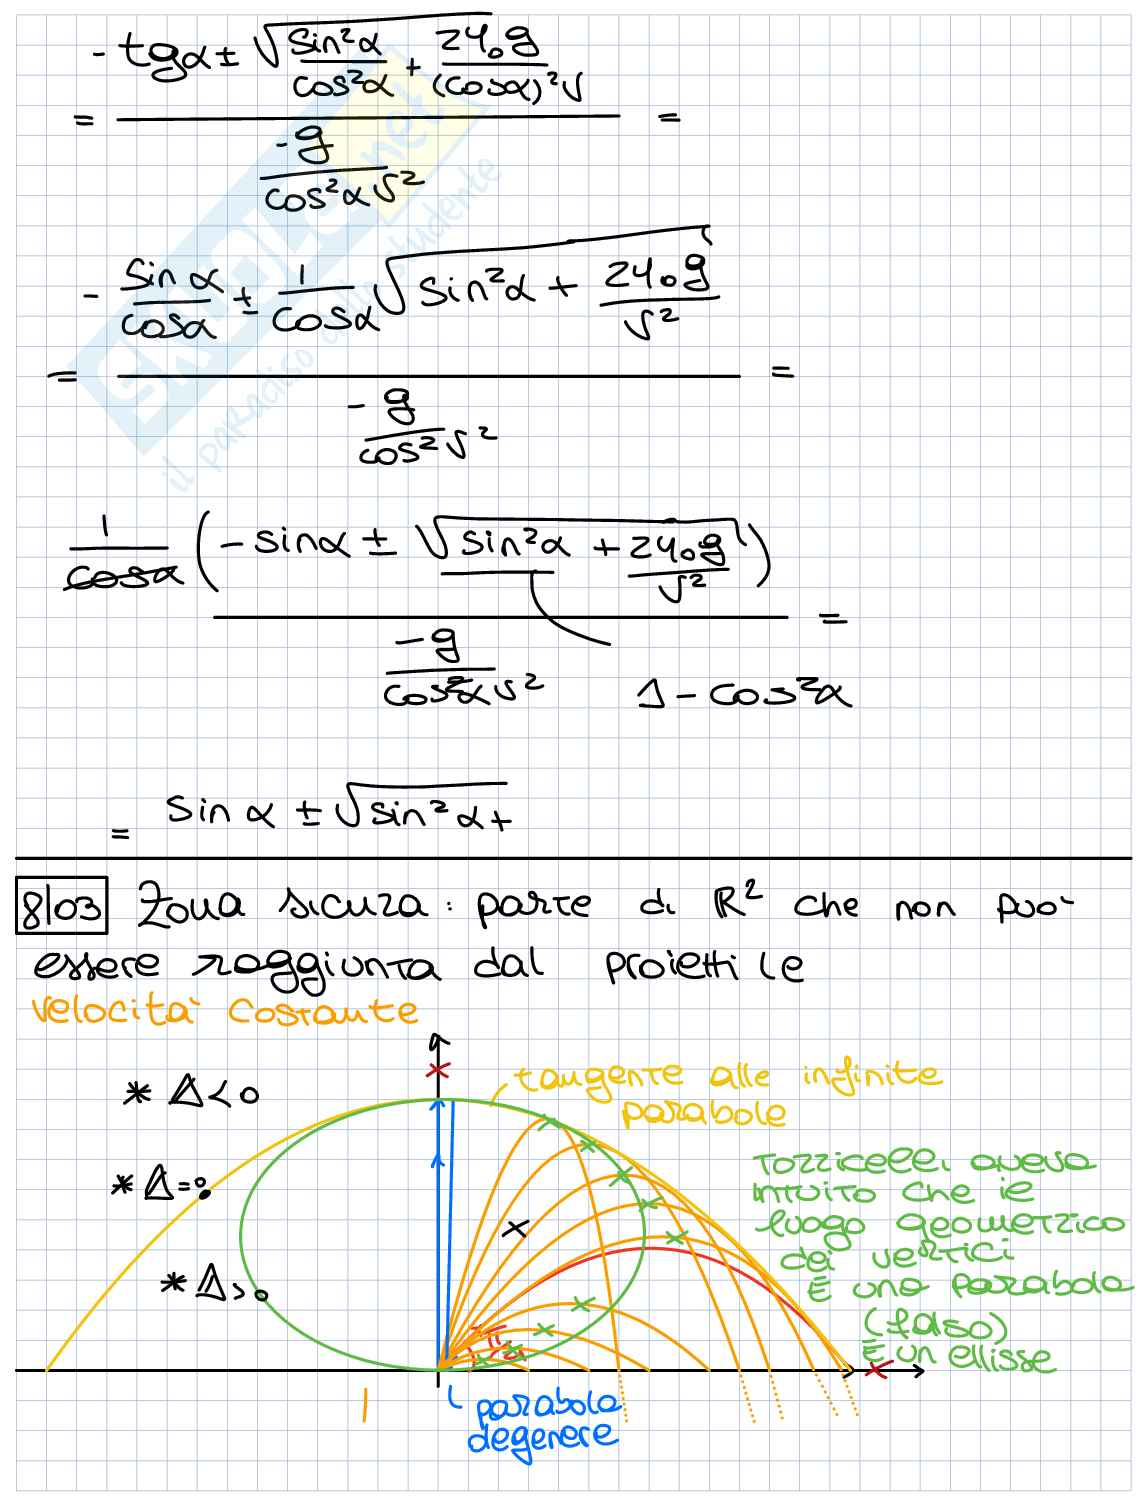 = (-tgα ± √(sin²α/cos²α + 2y₀g/(cosα)²v)) / (-g/cos²αv²) =
= (-sinα/cosα ± 1/cosα √(sin²α + 2y₀g/v²)) / (-g/cos²v²) =
1/cosα (-sinα ± √(sin²α + 2y₀g/v²)) / (-g/cos²αv²) =
1 - cos²α
= sinα ± √sin²α +
8/03 Zona sicura: parte di ℝ² che non può
essere raggiunta dal proiettile
velocità costante
* Δ<0
tangente alle infinite
parabole
* Δ=0
Torricelli aveva
intuito che il
luogo geometrico
dei vertici
È una parabola
(falso)
È un ellisse
* Δ>0
parabola
degenere
SKUOLA.net
il paradiso dello studente